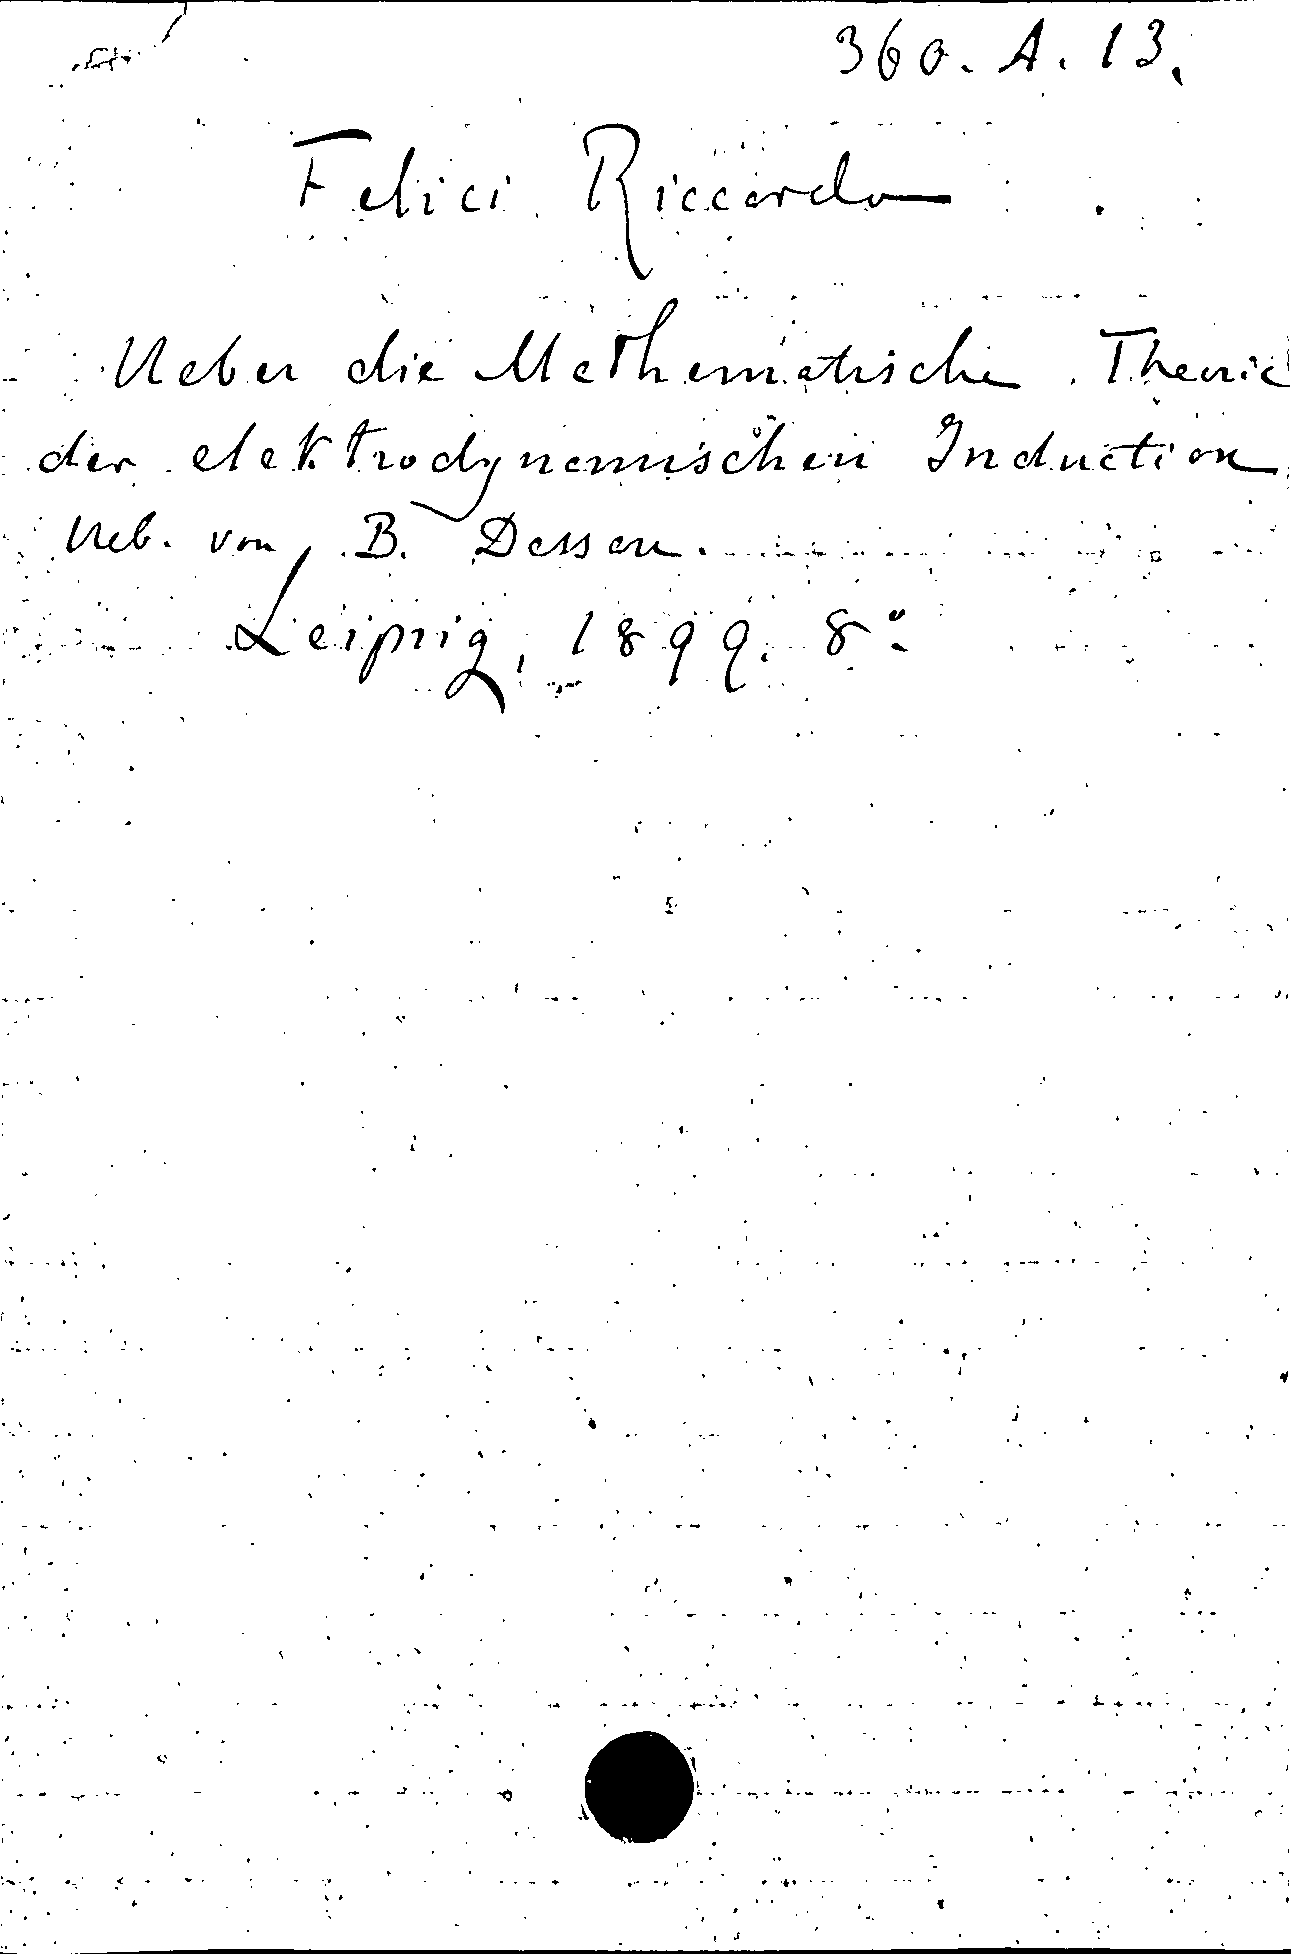 360. A. 13.
Felici Riccardo
Ueber die Mathematische Theorie
der elektrodynamischen Induction
Ueb. von B. Dessau.
Leipzig, 1899. 8º